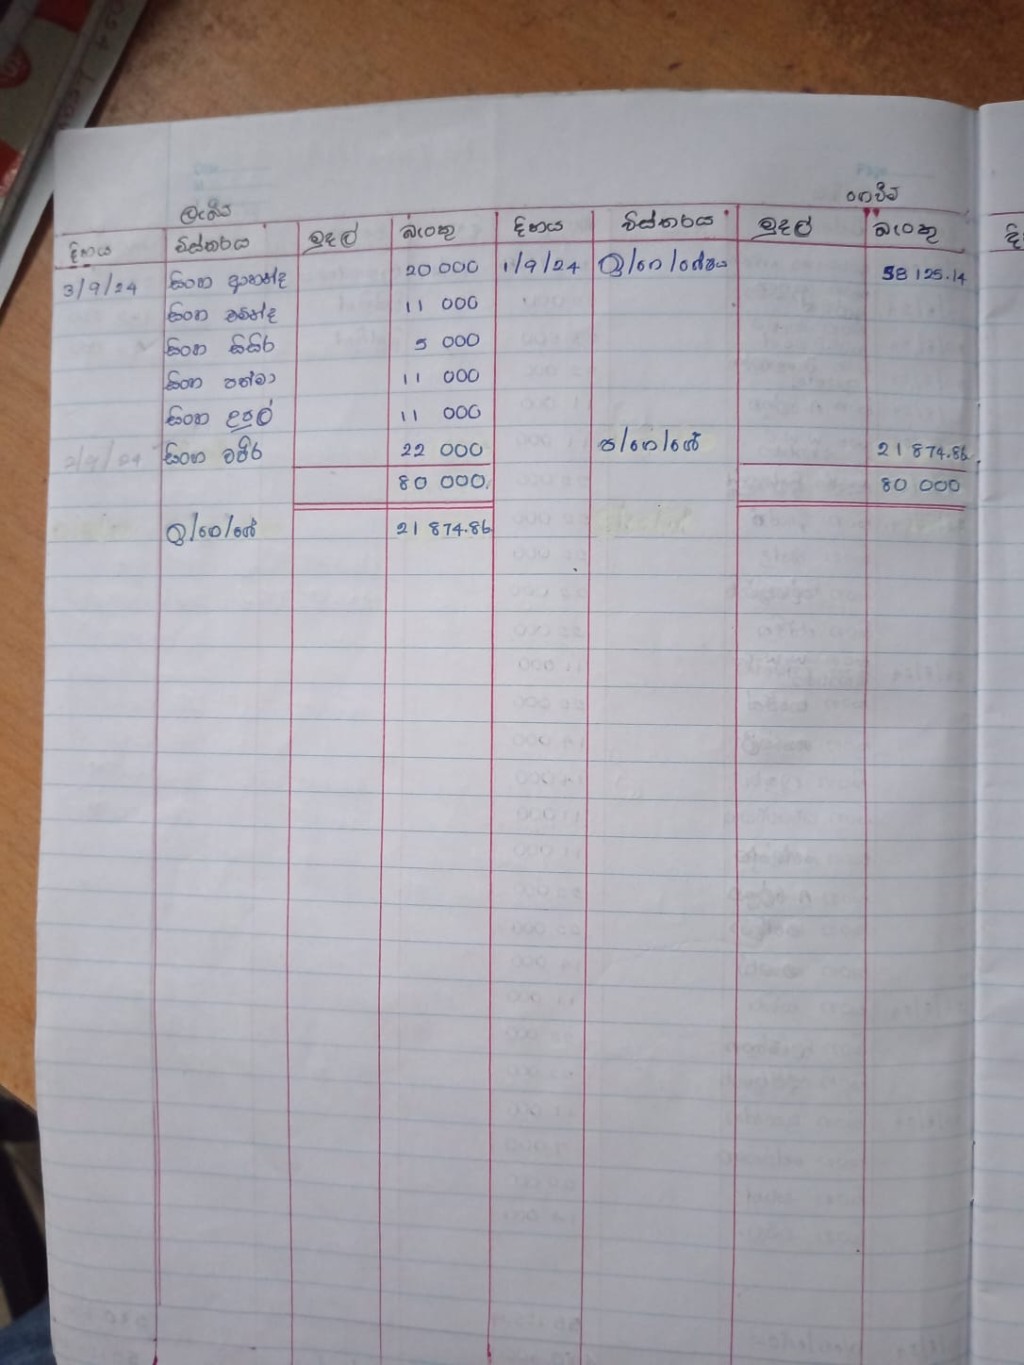 ලැබීම් ගෙවීම්
දිනය විස්තරය මුදල් බැංකු දිනය විස්තරය මුදල් බැංකු
3/9/24 සිංහ ආනන්ද 20 000 1/9/24 ඉ/ගෙ/ශේෂය 58 125.14
සිංහ චමින්ද 11 000
සිංහ සිසිර 5 000
සිංහ පත්මා 11 000
සිංහ උපුල් 11 000
2/9/24 සිංහ චම්රි 22 000 ප/ගෙ/ශේ 21 874.86
80 000 80 000
ඉ/ගෙ/ශේ 21 874.86